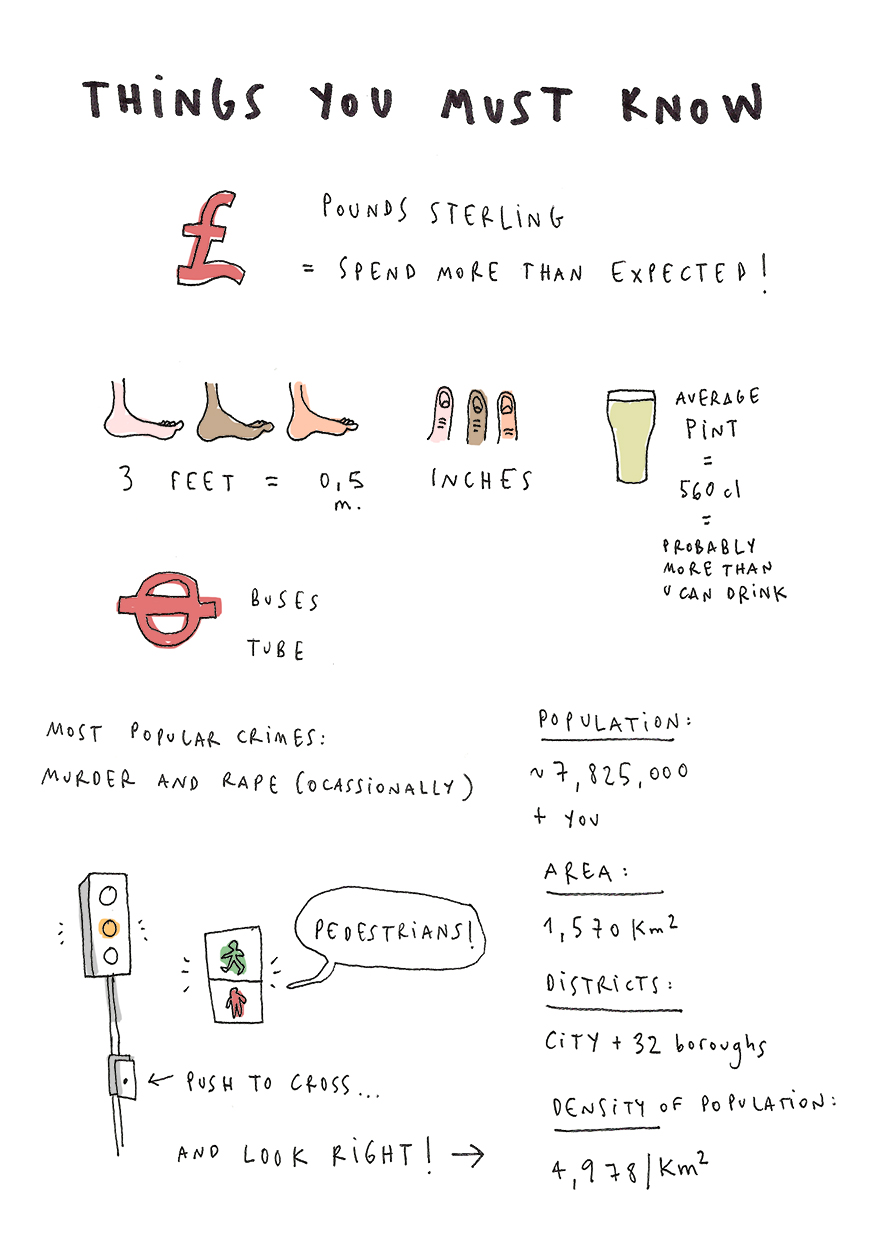 THiNGS YOU MUST KNOW
£
POUNDS STERLiNG
= SPEND MORE THAN EXPECTED!
3 FEET = 0,5
m.
INCHES
AVERAGE
PiNT
=
560 cl
=
PROBABLY
MORE THAN
U CAN DRINK
BUSES
TUBE
MOST POPULAR CRIMES:
MURDER AND RAPE (OCASSIONALLY)
POPULATiON:
~7,825,000
+ YOU
AREA:
1,570 Km²
DiSTRiCTS:
CiTY + 32 boroughs
DENSiTY OF POPULATiON:
4,978/Km²
PEDESTRiANS!
← PUSH TO CROSS...
AND LOOK RiGHT! →